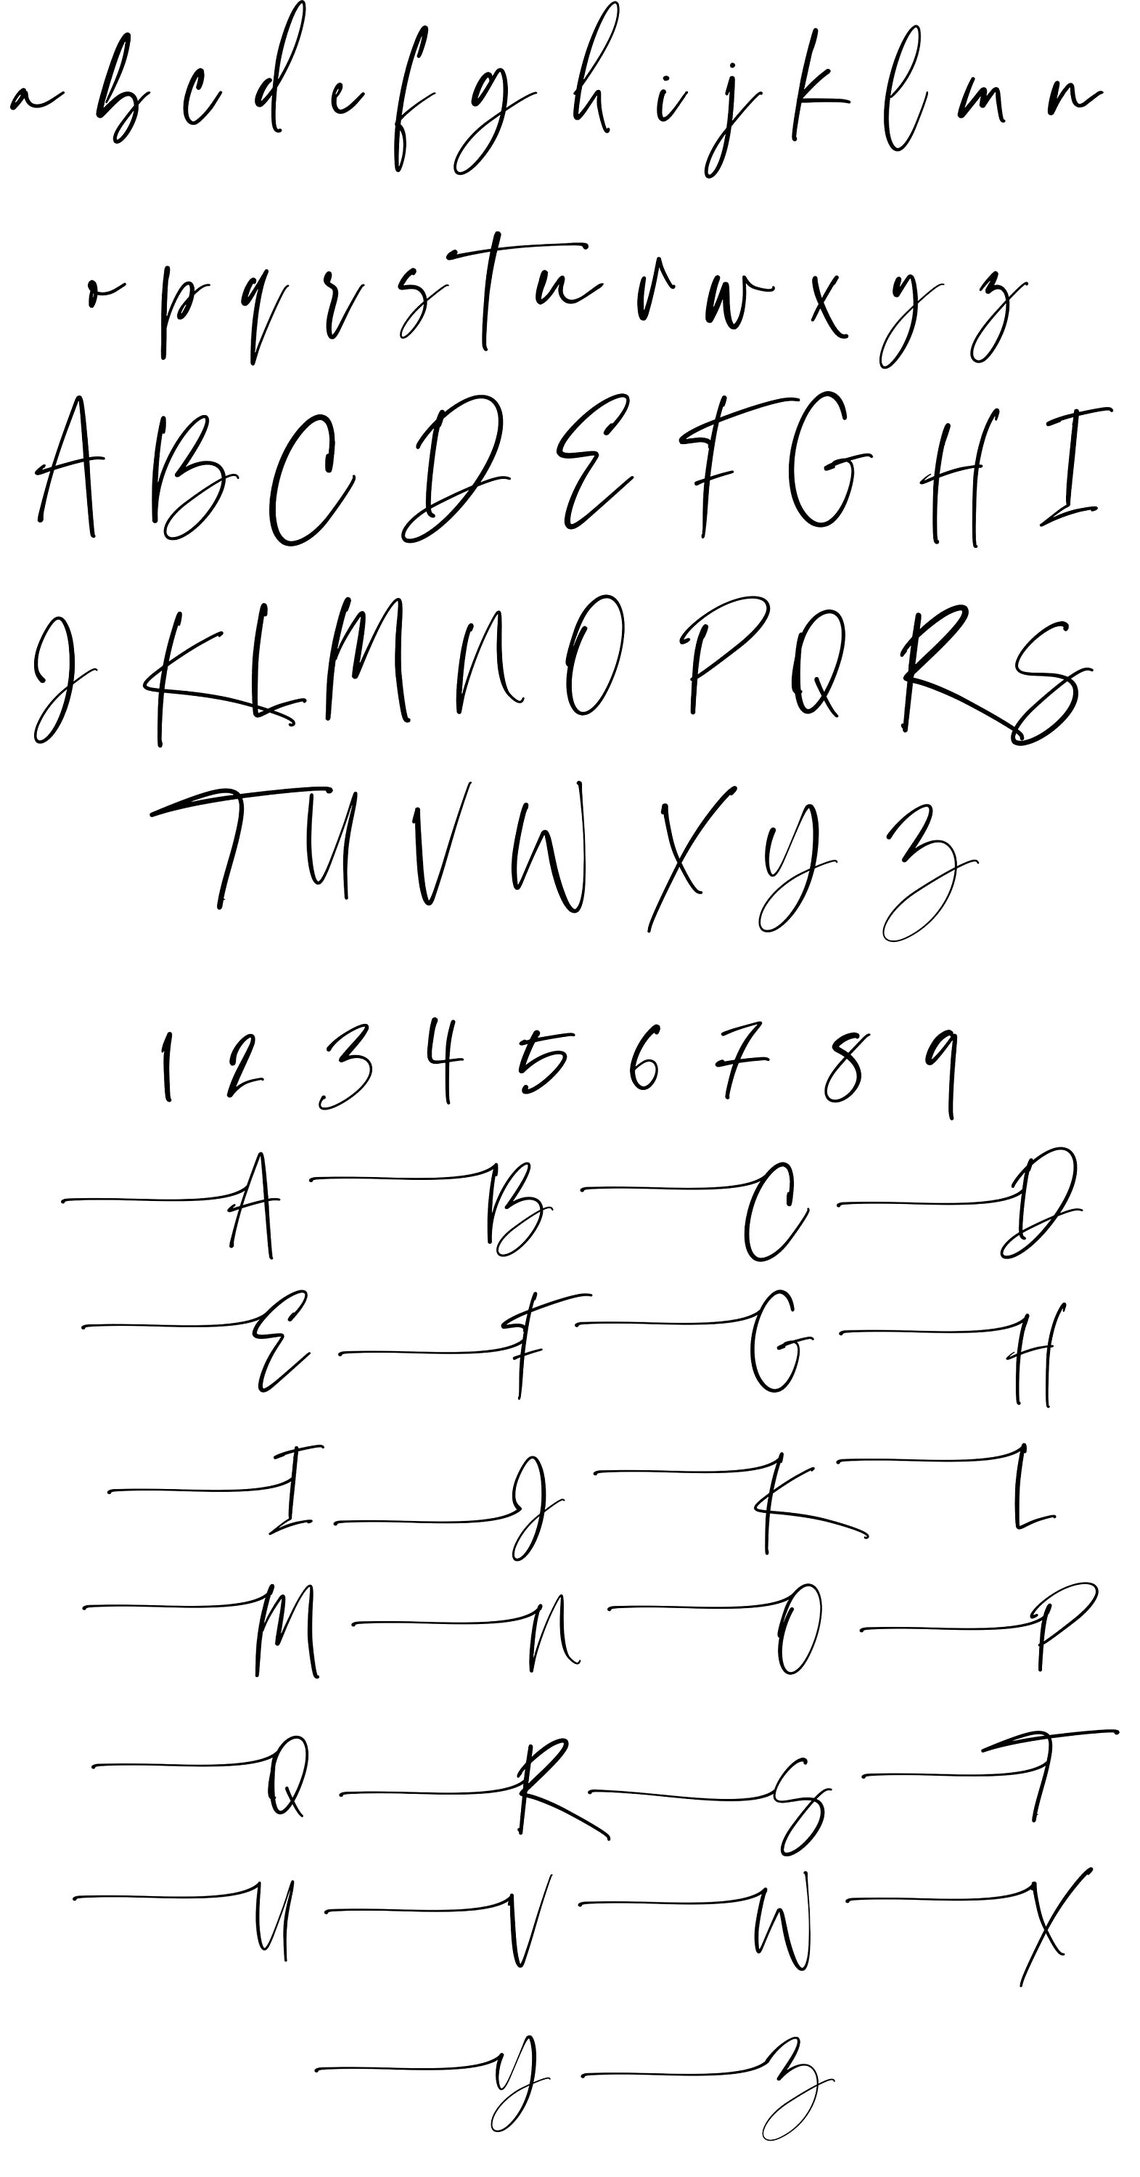 a b c d e f g h i j k l m n
o p q r s t u v w x y z
A B C D E F G H I
J K L M N O P Q R S
T U V W X Y Z
1 2 3 4 5 6 7 8 9
A B C D
E F G H
I J K L
M N O P
Q R S T
U V W X
Y Z